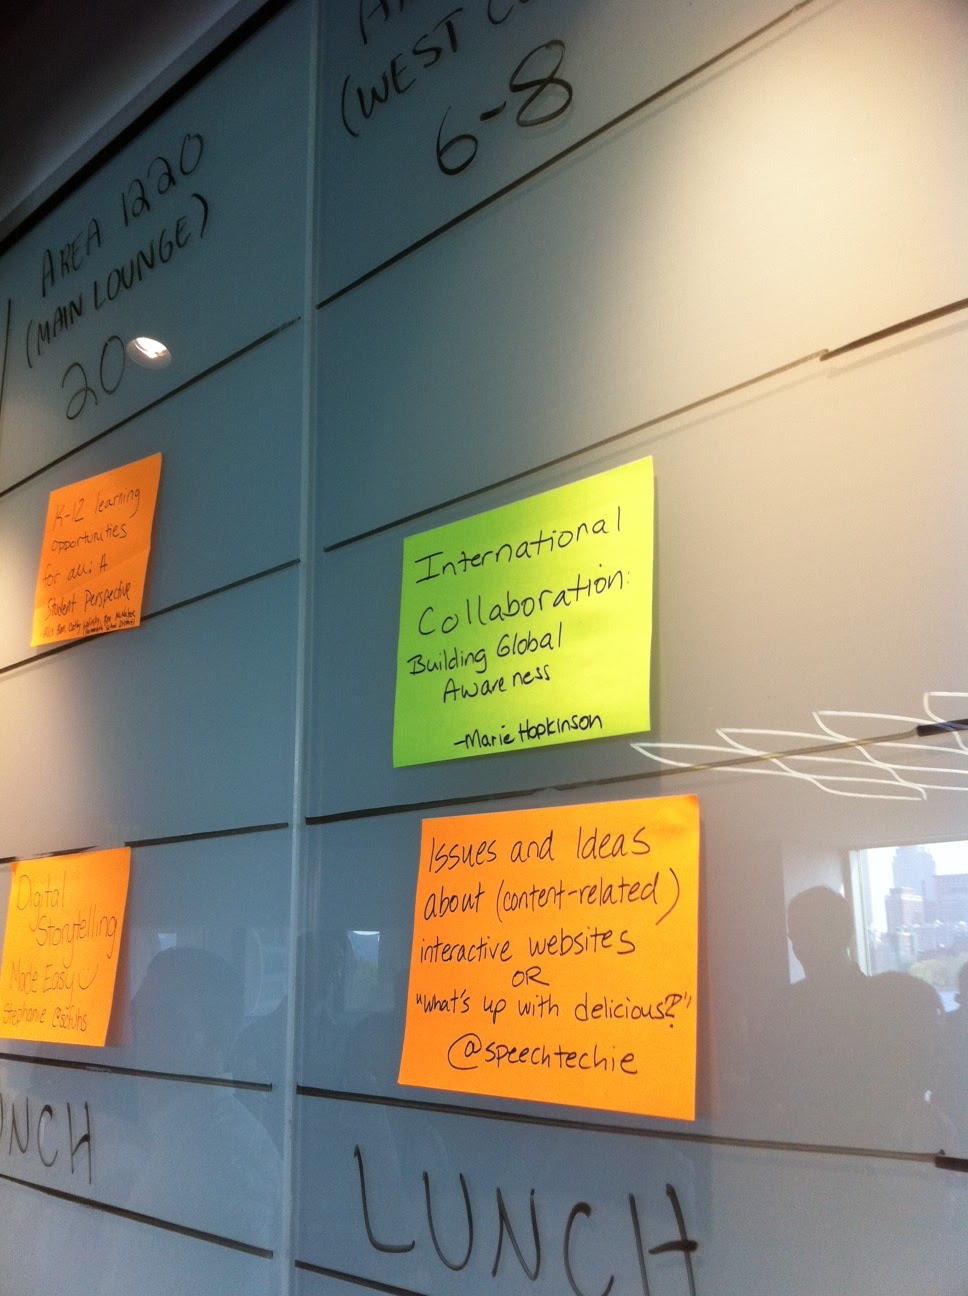 AREA 1220
(MAIN LOUNGE)
20
K-12 learning
opportunities
for all: A
Student Perspective
Digital
Storytelling
Made Easy
Stephanie
UNCH
(WEST
6-8
International
Collaboration:
Building Global
Awareness
-Marie Hopkinson
Issues and Ideas
about (content-related)
interactive websites
OR
"what's up with delicious?"
@speechtechie
LUNCH